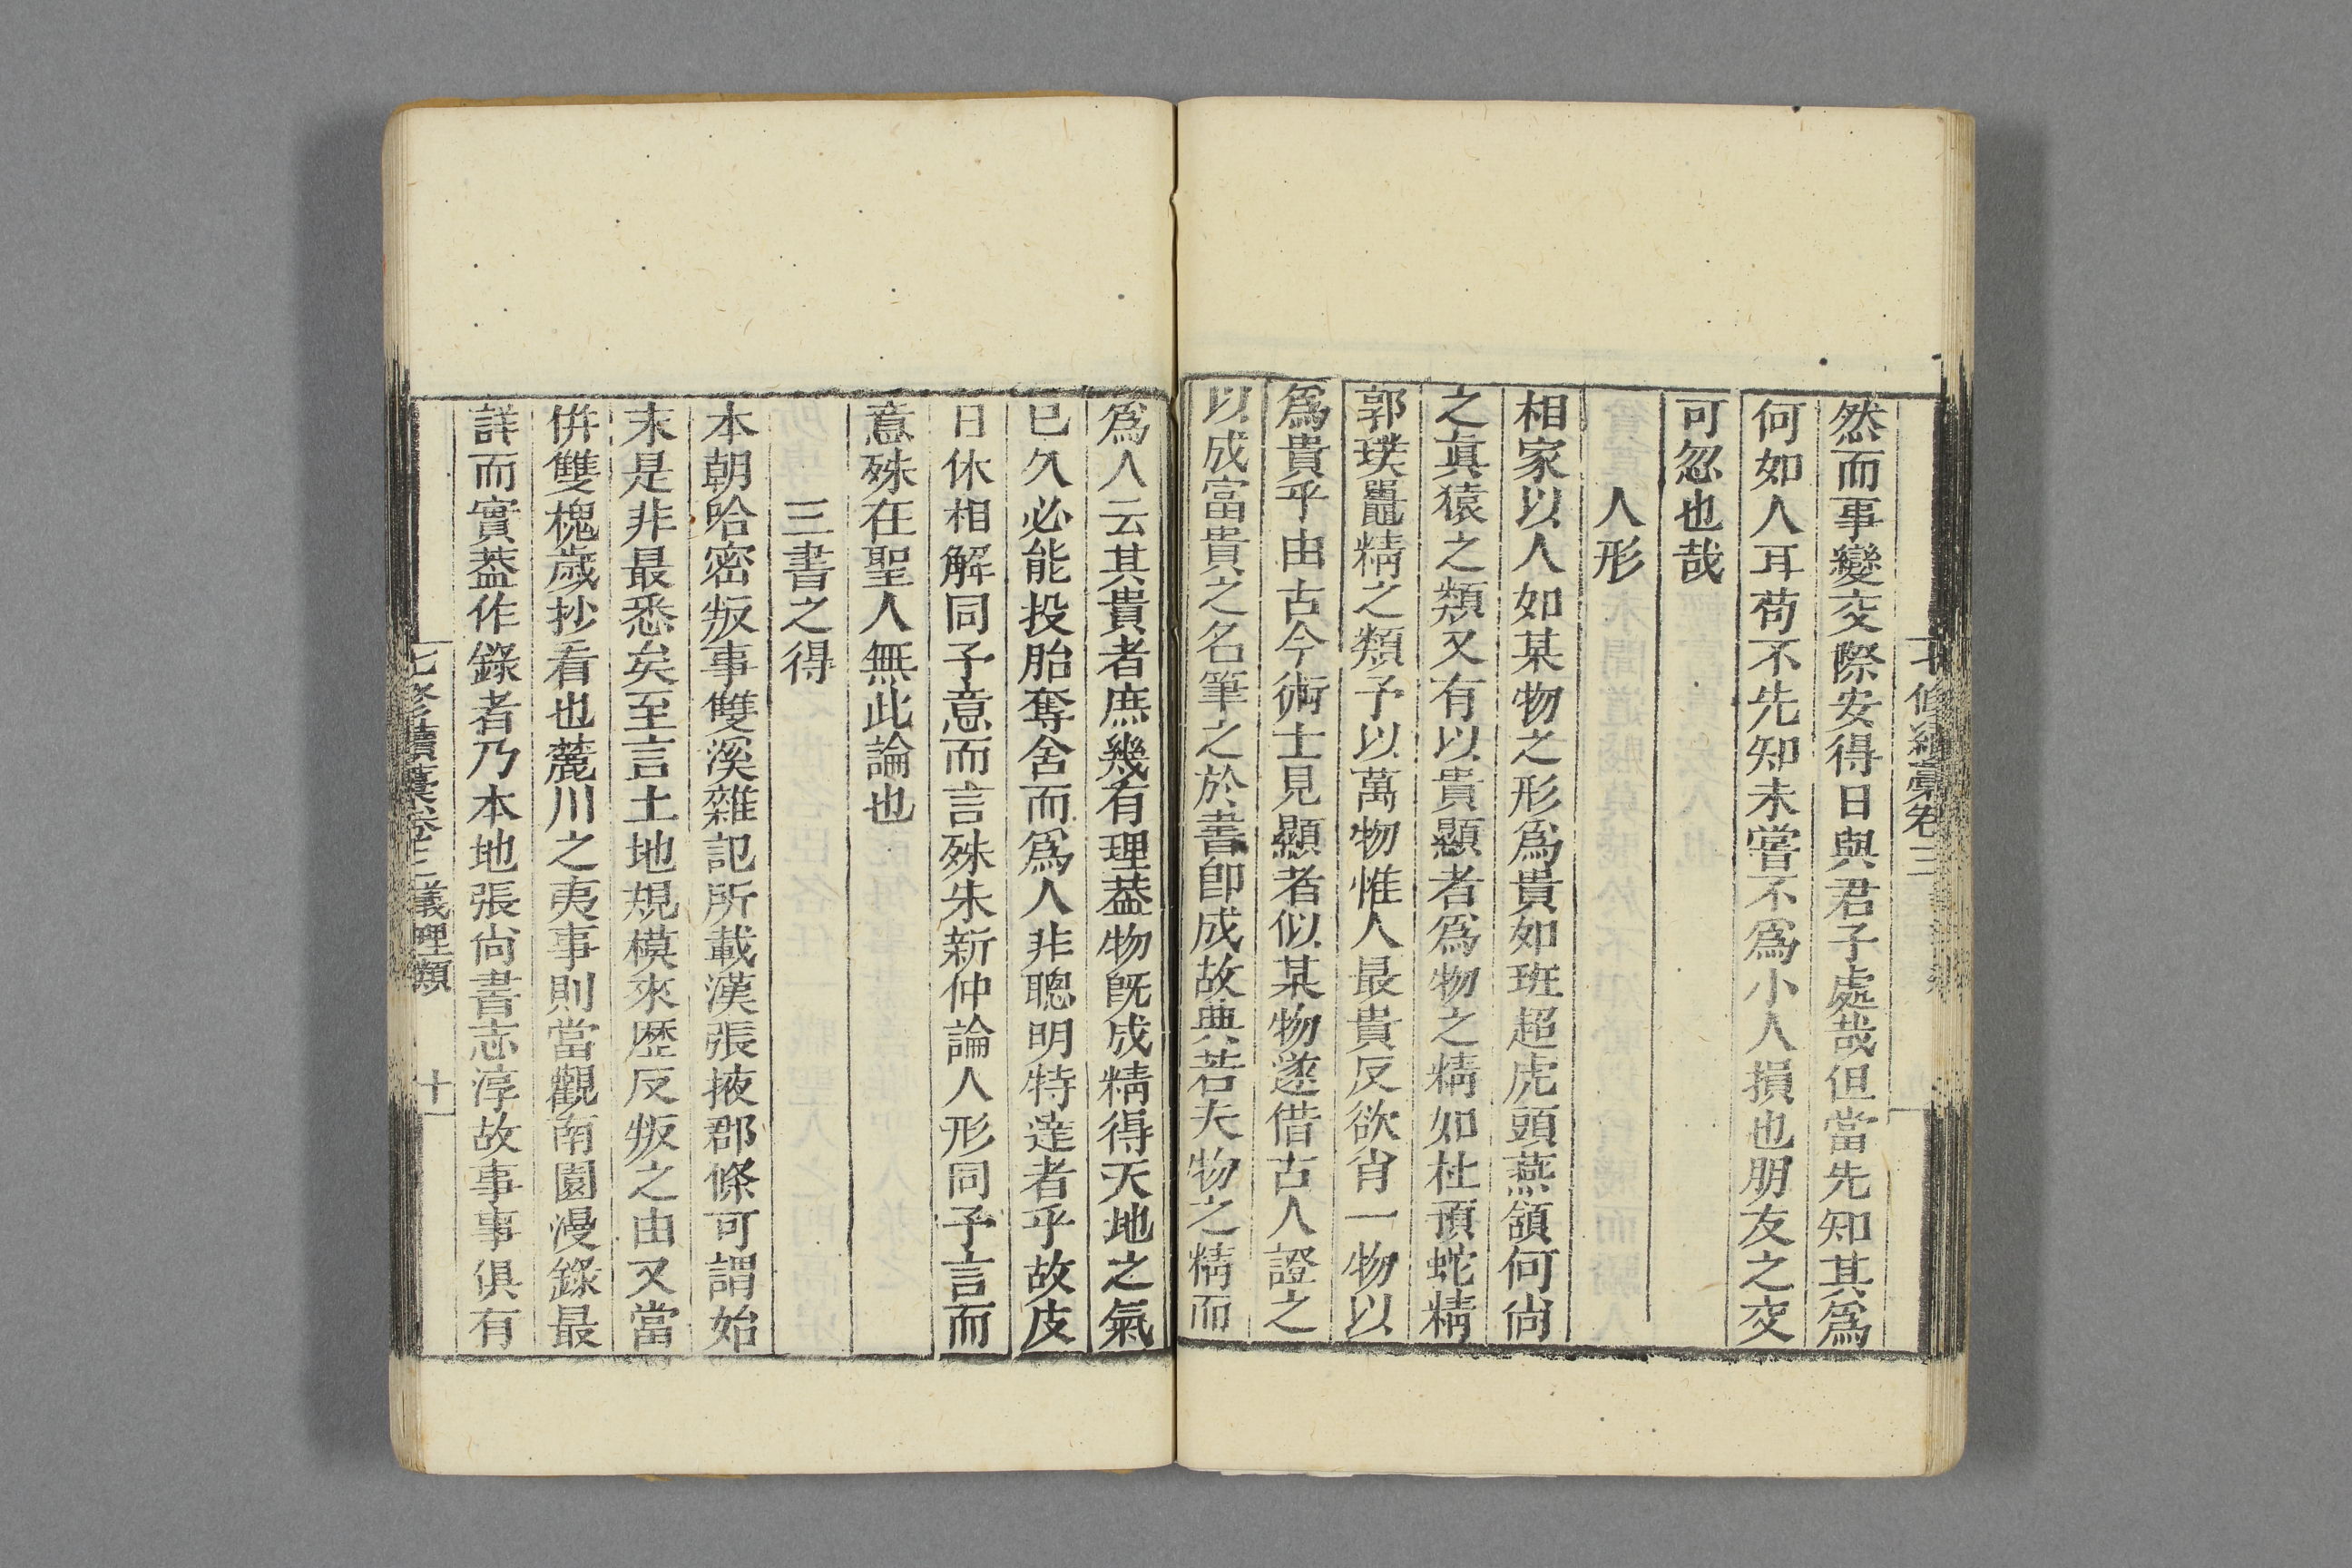 七修續稾卷三
然而事變交際安得日與君子處哉但當先知其爲
何如人耳苟不先知未嘗不爲小人損也朋友之交
可忽也哉
人形
相家以人如某物之形爲貴如班超虎頭燕頷何尙
之眞猿之類又有以貴顯者爲物之精如杜預蛇精
郭璞鼉精之類予以萬物惟人最貴反欲肖一物以
爲貴乎由古今術士見顯者似某物遂借古人證之
以成富貴之名筆之於書卽成故典若夫物之精而
爲人云其貴者庶幾有理葢物旣成精得天地之氣
已久必能投胎奪舍而爲人非聰明特達者乎故皮
日休相解同予意而言殊朱新仲論人形同予言而
意殊在聖人無此論也
三書之得
本朝哈密叛事雙溪雜記所載漢張掖郡條可謂始
末是非最悉矣至言土地規模來歷反叛之由又當
倂雙槐歲抄看也麓川之夷事則當觀南園漫錄最
詳而實葢作錄者乃本地張尙書志淳故事事俱有
七修續稾卷三義理類
十